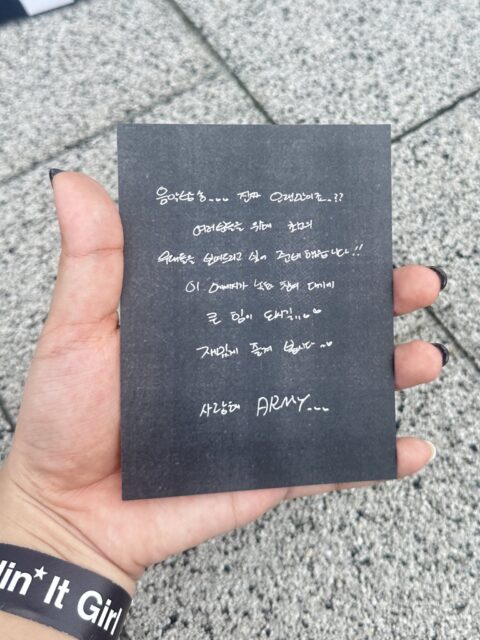 음악방송... 진짜 오랜만이죠..??
여러분들을 위해 최고의
무대들을 보여드리고 싶어 준비했습니다!!
이 메세지가 남은 올해
큰 힘이 되시길..♡
재밌게 즐겨 봅시다..♡
사랑해 ARMY...
lin*It Girl